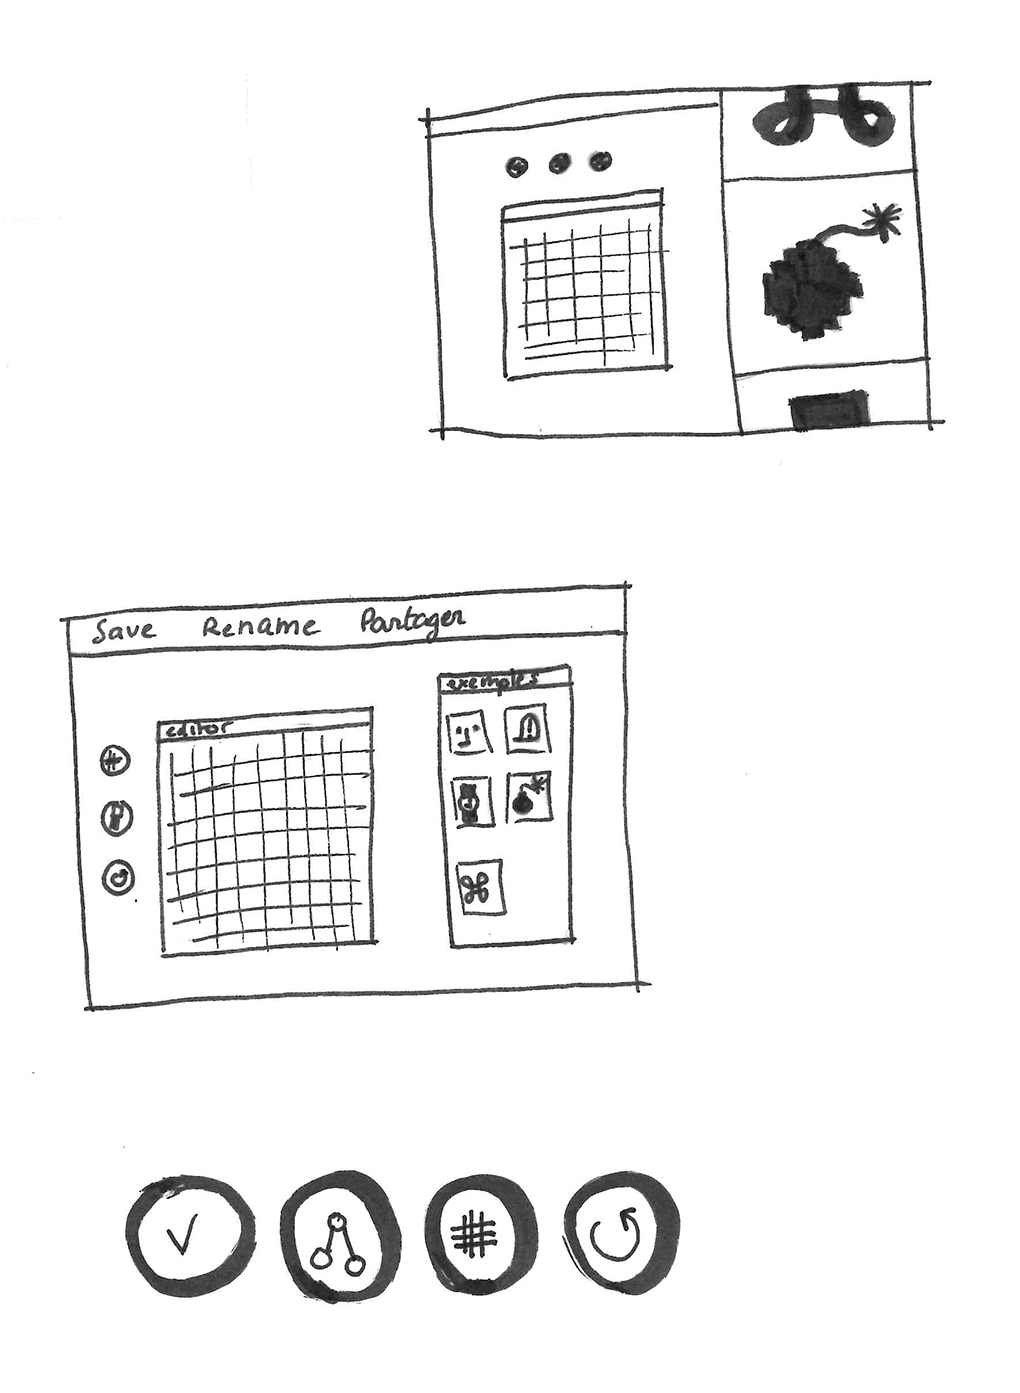 Save Rename Partager
editor
exemples